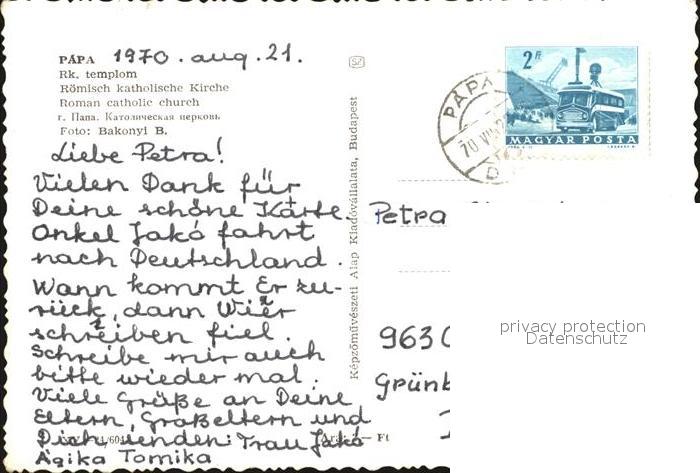 PÁPA 1970. aug. 21.
Rk. templom
Römisch katholische Kirche
Roman catholic church
г. Папа. Католическая церковь
Foto: Bakonyi B.
Liebe Petra!
Vielen Dank für
Deine schöne Karte.
Onkel Jakó fahrt
nach Deutschland.
Wann kommt Er zu-
rück, dann Wier
schreiben fiel.
Schreibe mir auch
bitte wieder mal.
Viele Grüße an Deine
Eltern, Großeltern und
Dich senden: Trau Jakó
Ágika Tomika
Képzőművészeti Alap Kiadóvállalata, Budapest
Ft
2 Ft
MAGYAR POSTA
PÁPA
70 VIII
Petra
963
Grünb
privacy protection
Datenschutz